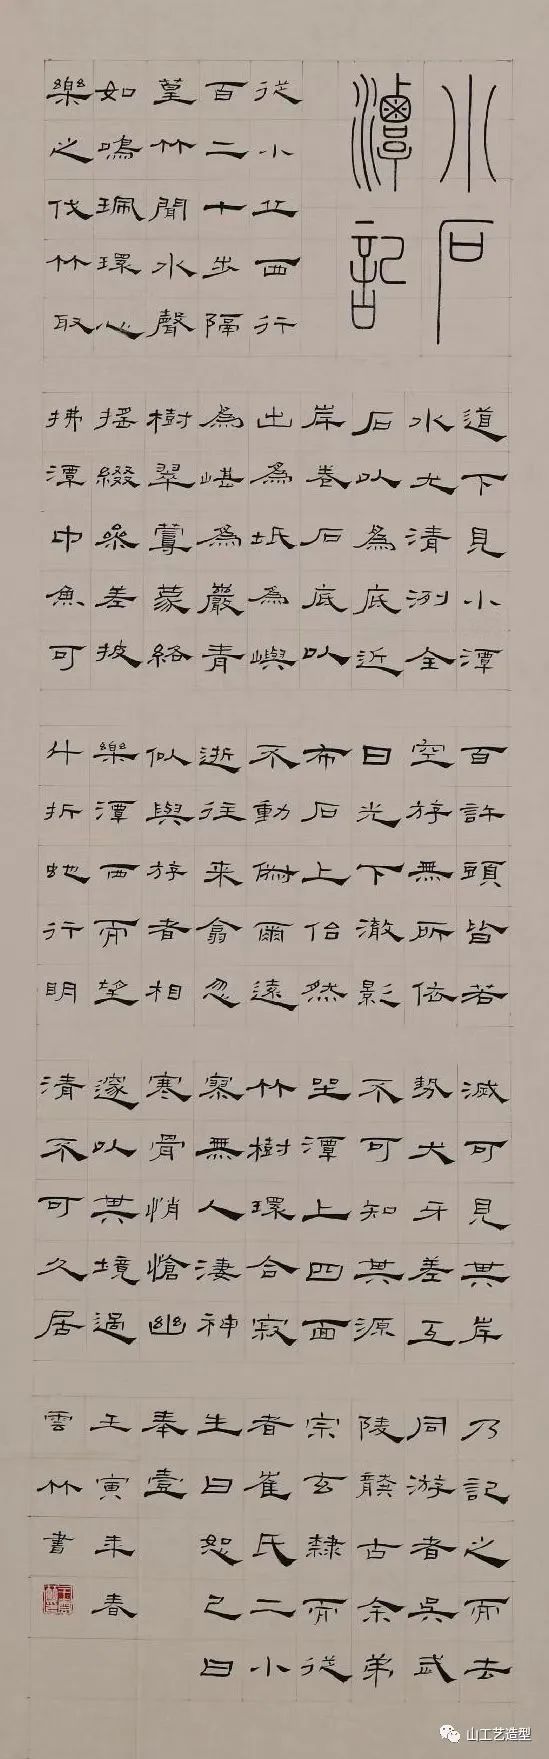 小石
潭記
從小丘西行
百二十步隔
篁竹聞水聲
如鳴珮環心
樂之伐竹取
道下見小潭
水尤清冽全
石以為底近
岸卷石底以
出為坻為嶼
為嵁為巖青
樹翠蔓蒙絡
搖綴參差披
拂潭中魚可
百許頭皆若
空游無所依
日光下澈影
布石上佁然
不動俶爾遠
逝往来翕忽
似與游者相
樂潭西而望
斗折蛇行明
滅可見其岸
勢犬牙差互
不可知其源
坐潭上四面
竹樹環合寂
寥無人淒神
寒骨悄愴幽
邃以其境過
清不可久居
乃記之而去
同游者吳武
陵龔古余弟
宗玄隸而從
者崔氏二小
生曰恕己曰
奉壹
壬寅年春
雲竹書
山工艺造型